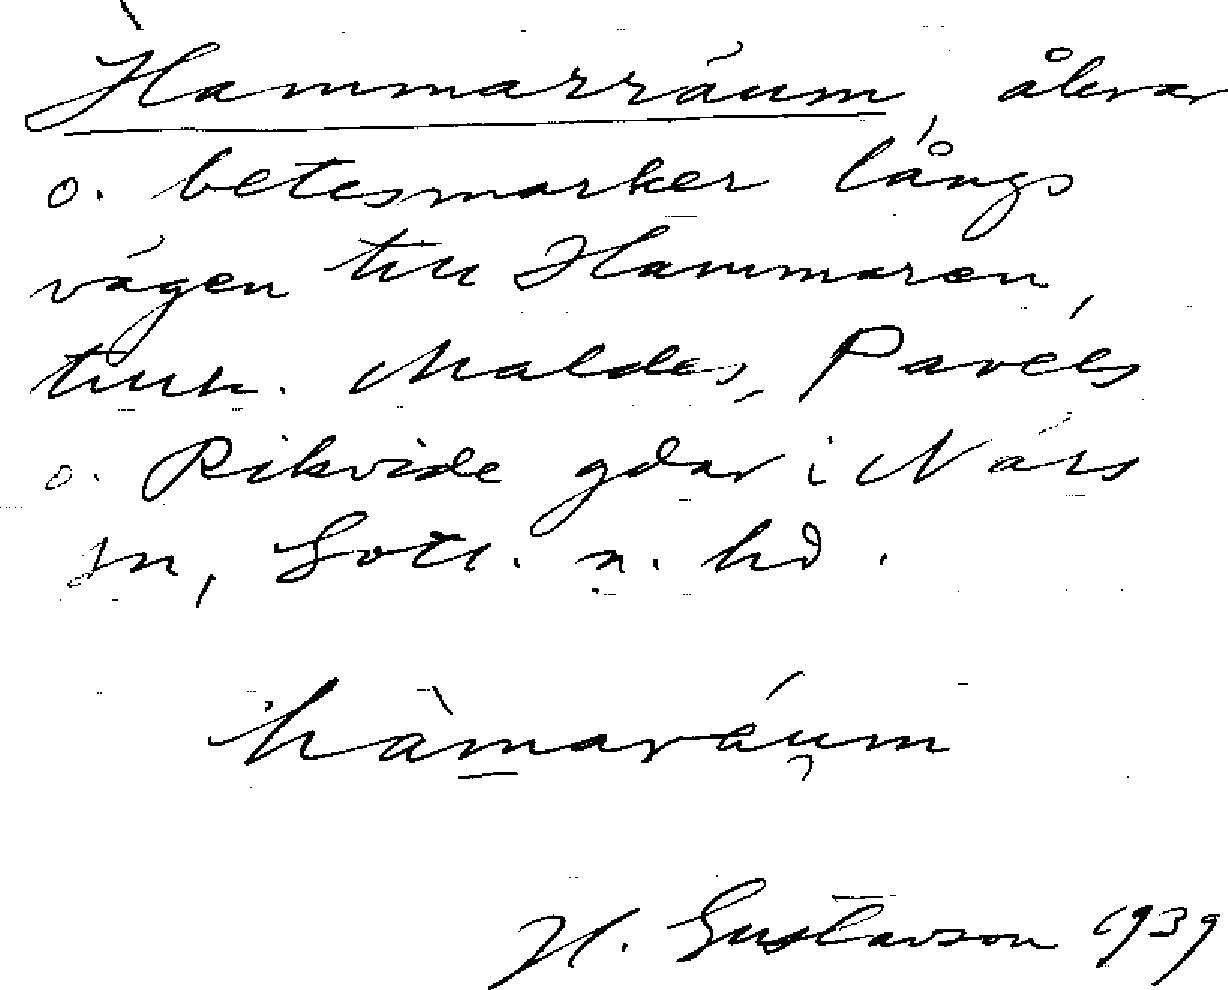 Hammarräum, åkrar
o. betesmarker längs
vägen till Hammaren,
tillh. Maldes, Pavels
o. Rikvide gdar i När s
sn, Gotl. s. hd.
hàmaráu̯m
H. Gustavson 1939